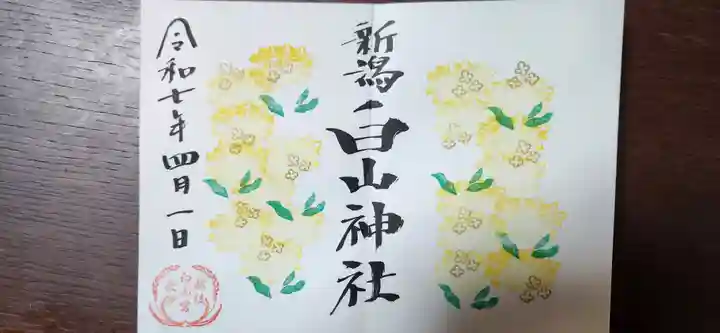 新潟白山神社
令和七年四月一日